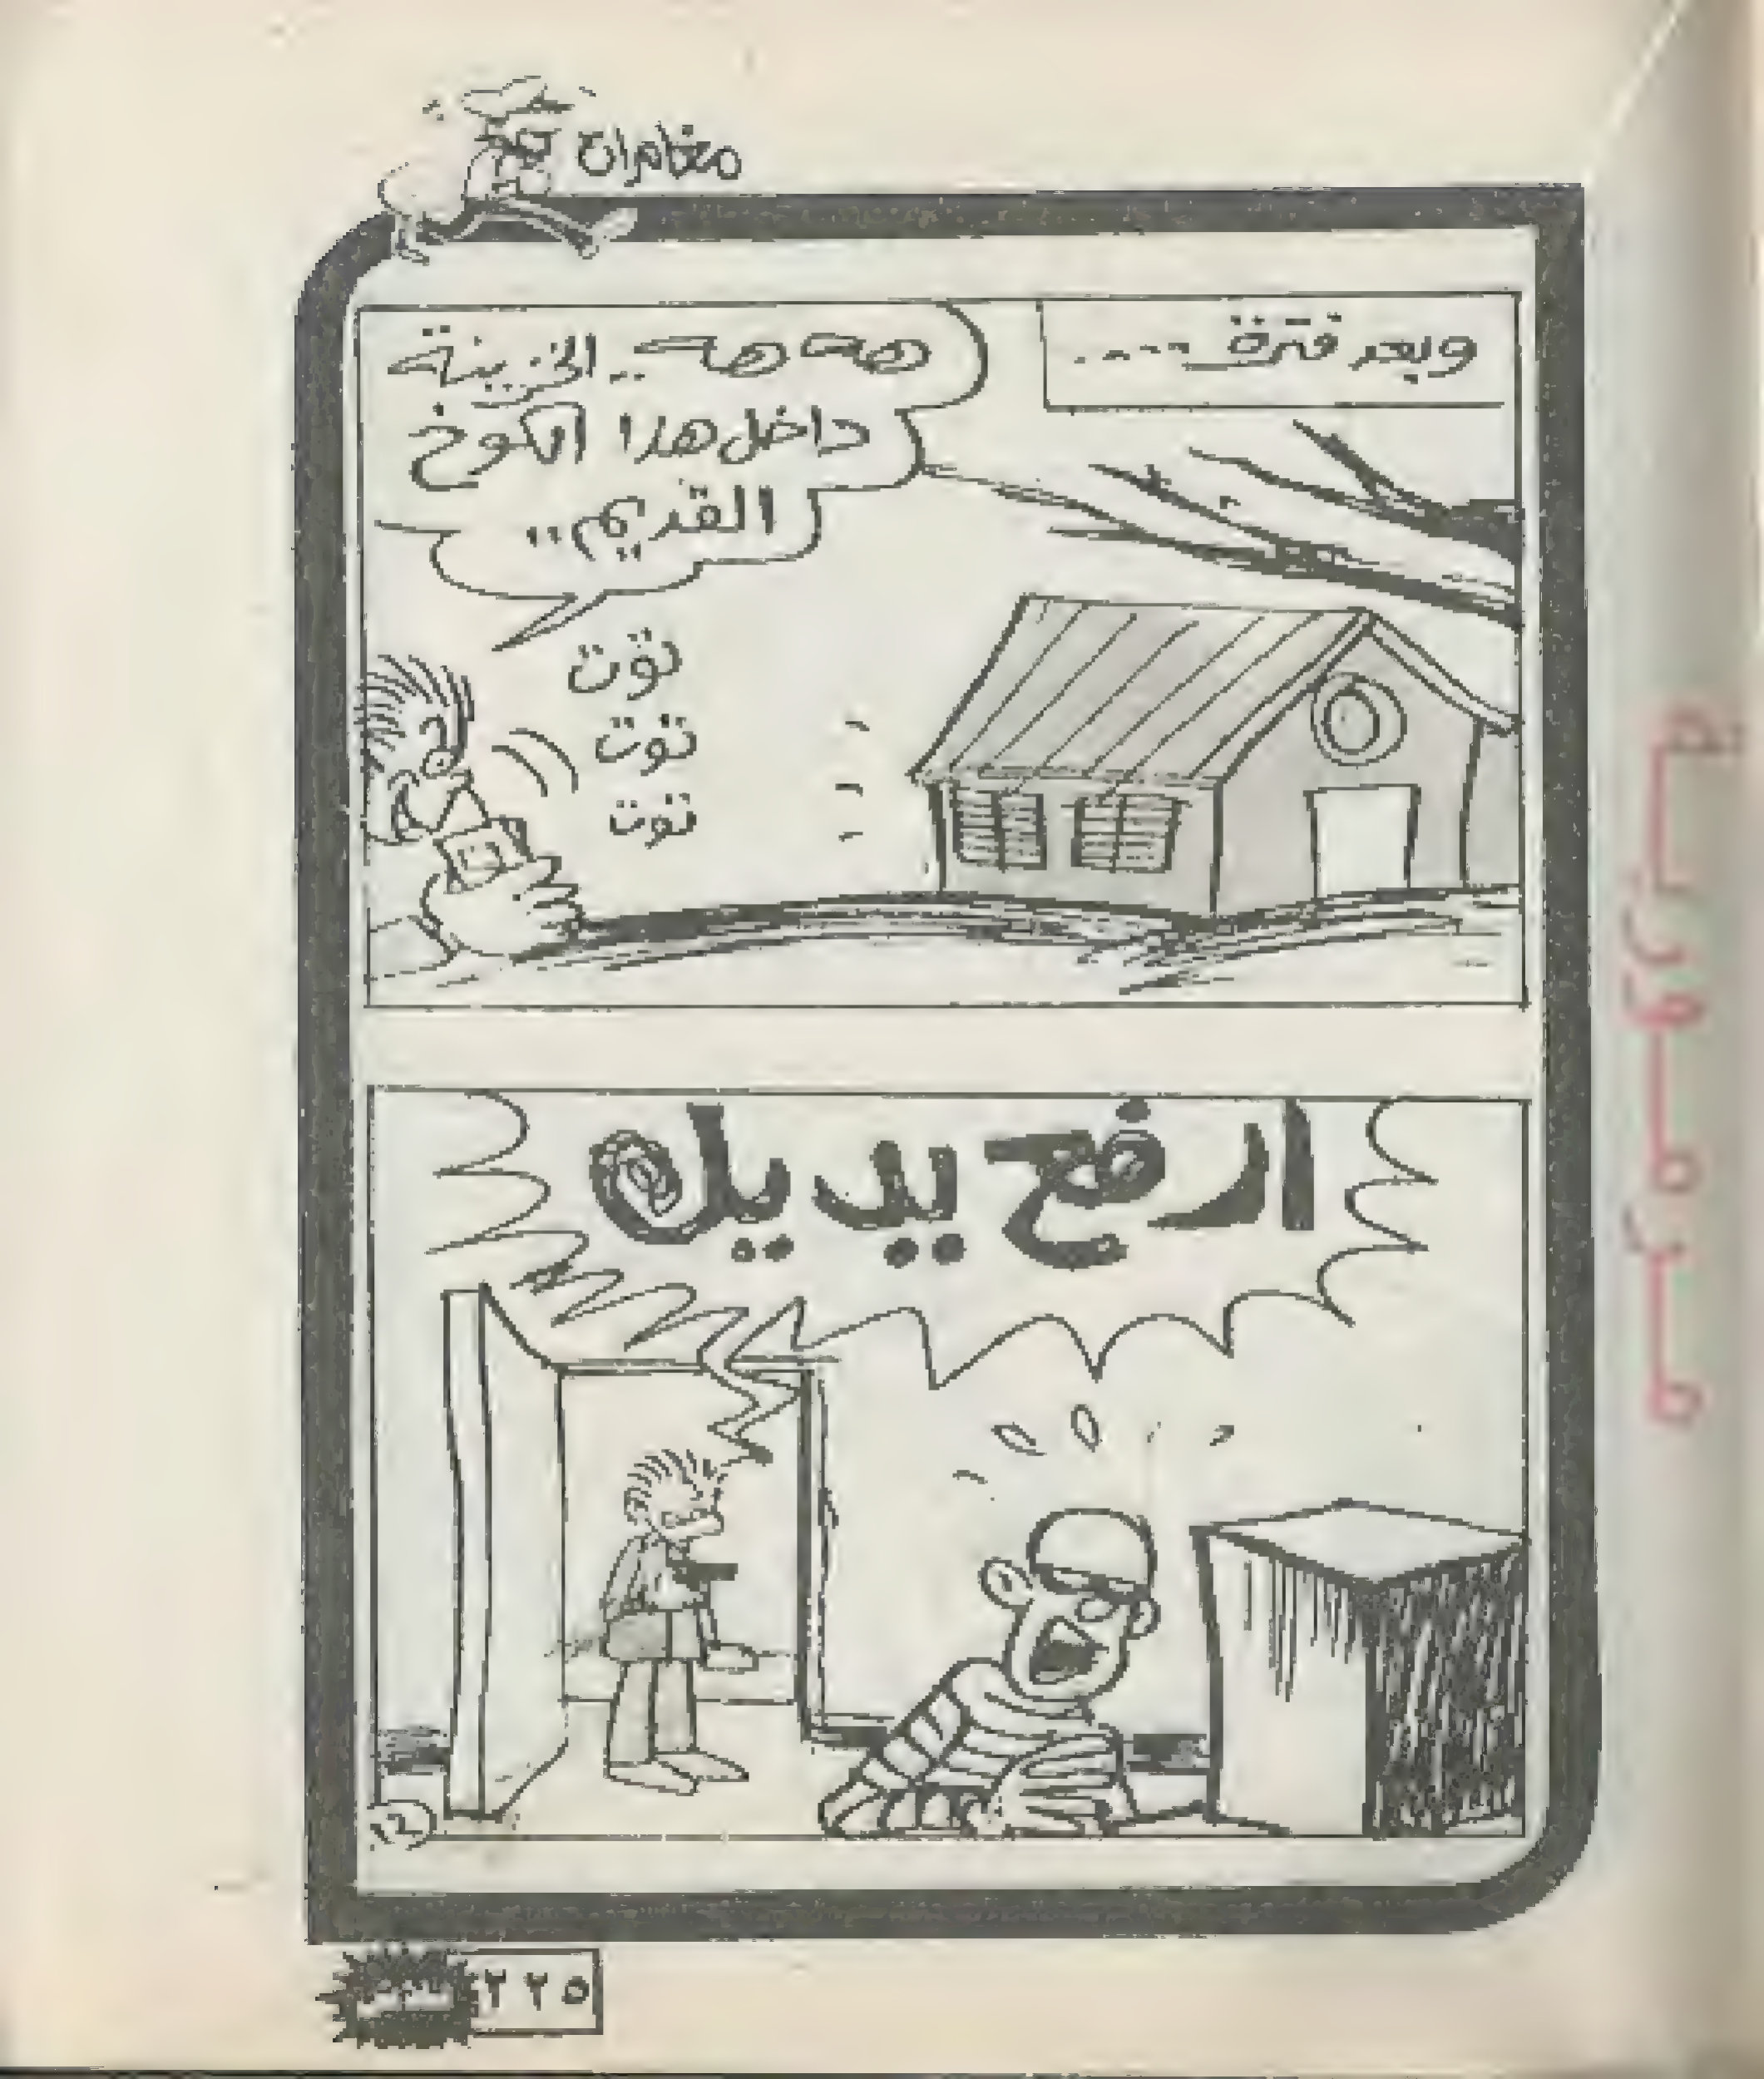 مغامرات
وبعد فترة ....
هه هه هه .. الخزينة
داخل هذا الكوخ
القديم ..
توت
توت
توت
ارفع يديك
١٢
٢٢٥
مرمورية